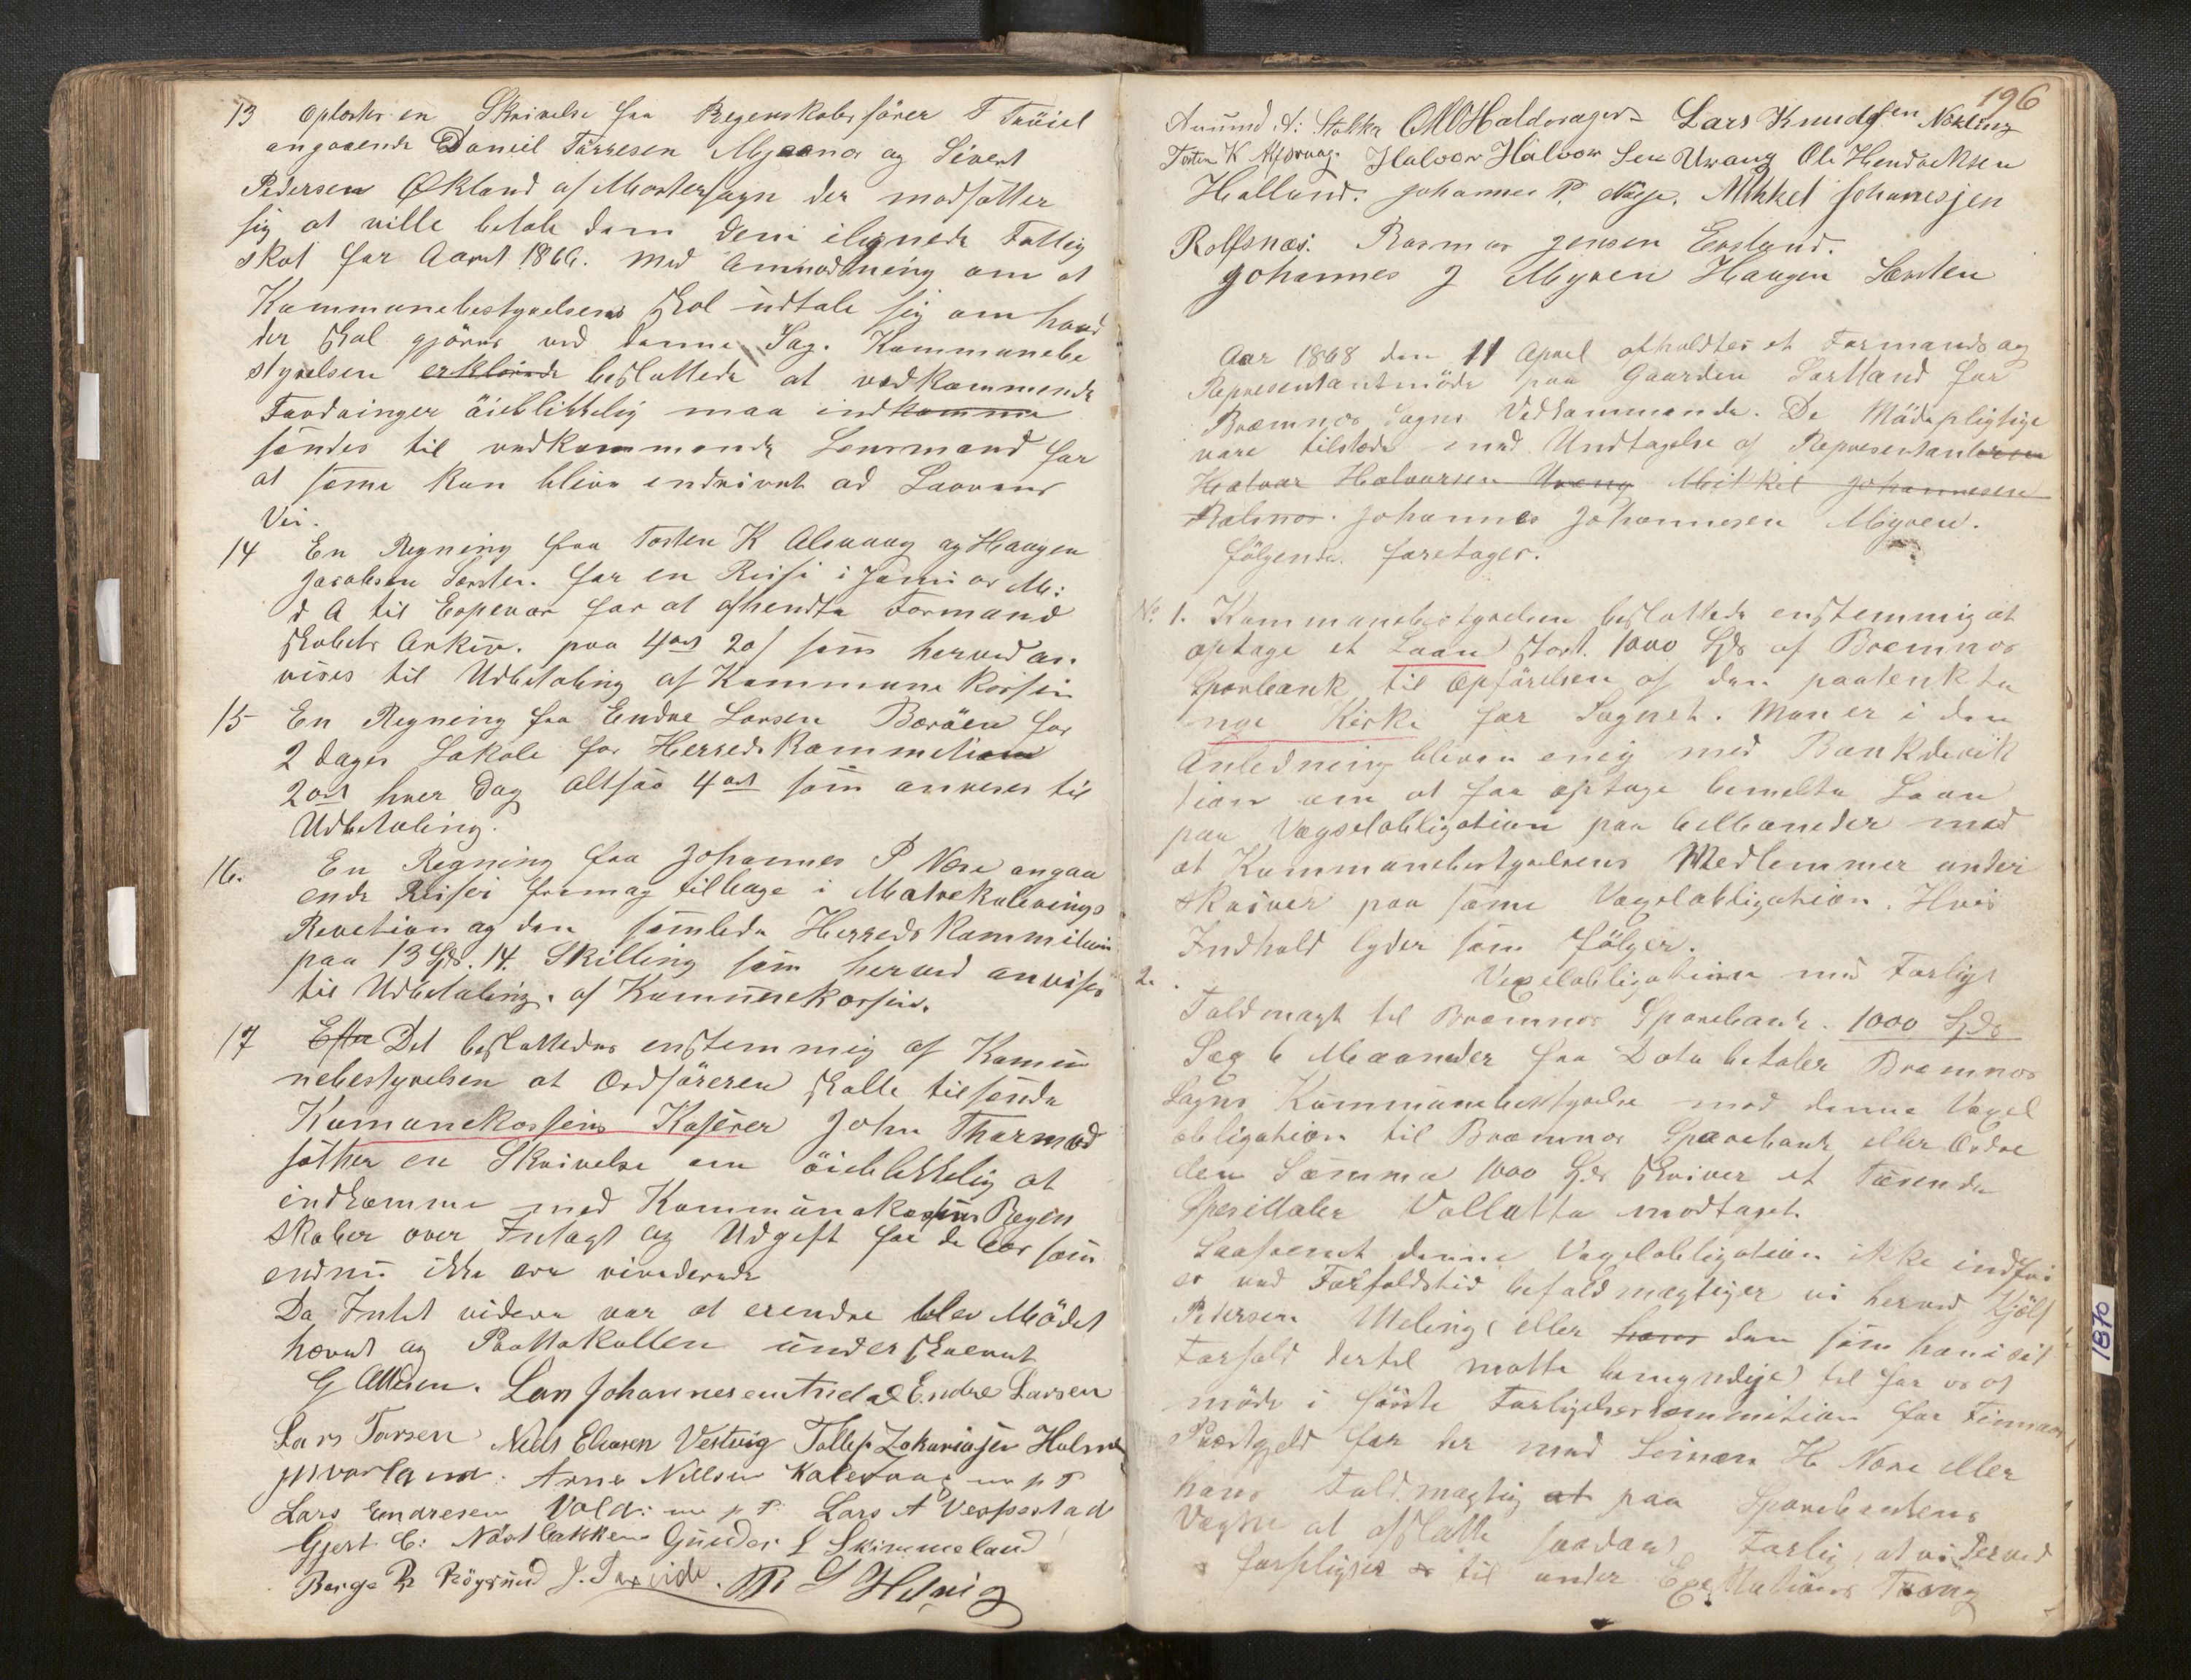 13 Oplæstes en Skrivelse fra Regenskabsfører T Trøiel
angaaende Daniel Tørresen Mjaanæs og Sivert
Pedersen Økland af Mostersogn der modsætter
sig at ville betale dem dem ilignede Fattig
skat for Aaret 1866. med Anmodning om at
Kommunebestyrelsens skal udtale sig om hvad
der skal gjøres ved denne Sag. Kommunebe
styrelsen erklærede besluttede at vedkommende
Fordringer øieblikkelig maa indkomme
sendes til vedkommende Lensmand for
at same kan blive inddrivet ad Lovens
Vei.
14 En Regning fra Torsten K Alsvaag og Haagen
Jacobsen Sørsten for en Reise i Januar M:
d A til Espevær for at afhendte Formand
skabets Arkiv. paa 4 ort 20 s som herved an
vises til Udbetaling af Kommune Kassen
15 En Regning fra Endre Larsen Barøen for
2 dages Lokale for Herredskommetionen
2 ort hver Dag altsaa 4 ort som anvises til
Udbetaling.
16. En Regning fra Johannes P Nese angaa
ende Reiser frem og tilbage i Matrekulerings
Revetion og den samlede Herreds kommition
paa 13 Spd. 14. Skilling som herved anvises
til Udbetaling. af Kommunekassen.
17 Efter Det besluttedes enstemmig af Komu
nebestyrelsen at Ordføreren skulle tilsende
Komunekassens Kaserer John Thormod
sæther en Skrivelse om øieblikkelig at
indkomme med Kommunekassens Regen
skaber over Indtægt og Udgift for de Aar som
endnu ikke ere reviderede
Da Intet videre var at erendre blev Mødet
hævet og Prottokollen underskrevet
G Ollesen. Lars Johannesen Endre Larsen
Lars Larsen Niels Eliasen Vestvig Tollef Zakariasen Holme
Arne Nillsen Kalevaag m p P
Lars Endresen Vold: m p P. Lars A Vespestad
Gjert C: Nøstbakken Gunder L Skimmeland
Børge Røgsund J. R L Hervig
196
Amund A: Stokke O M Haldorager Lars Knudssen Nøkling
Torsten K Alfsvaag. Halvor Halvor Sen Uvang Ole Hendreksen
Holland. Johannes P. Nese. Mikkel Johanesjen
Rolfsnæs. Rasmus Jensen Erstand.
Johannes J Myren Haagen Sørsten
Aar 1868 den 11 April afholdtes et Formands og
Representantmøde paa Gaarden Sortland for
Bræmnæs Sogns Vedkommende. De Mødepligtige
vare tilstede med Undtagelse af Representanterne
Halvor Halvorsen Uvang Mikkel Johannesen
Rolsnæs. Johannes Johannesen Myren.
følgende foretages.
No 1. Kommunebestyrelsen besluttede enstemmig at
optage et Laan stort 1000 Spd af Bræmnæs
Sparbank til Opførelsen af den paatenkte
nye Kirke for Sognet. Man er i den
Anledning bleven enig med Bankderek
tion om at faa optage bemelte Laan
paa Vexselobligation paa 6 Maaneder med
at Kommunebestyrelsens Medlemmer under
skriver paa same Vexelobligation. Hvis
Indhold lyder som følger.
2. Vexelobligation med Forligs
Fuldmagt til Bræmnæs Sparebank. 1000 Spd
Sex 6 Maaneder fra Dato betaler Bræmnæs
Sogns Kommunebestyrelse mod denne Vexel
obligation til Bræmnæs Sparebank eller Ordre
den Summa 1000 Spd skriver et Tusende
Spesidaler Vallutta modtaget.
Saafremt denne Vexelobligation ikke indfri
es ved Forfaldstid befuldmægtiger vi herved Kjøl
Pedersen Meling (eller hans den som han i sit
Forfald dertil motte bemyndige) til for os at
møde i første Forligelseskommition for Finnaas
Præstgjeld for der med Simen H. Nese eller
hans Fuldmægtig at paa Sparebankens
Vegne at afslutte saadant Forlig, at vi derved
forpligter os til under Exekutions Tvang
1870